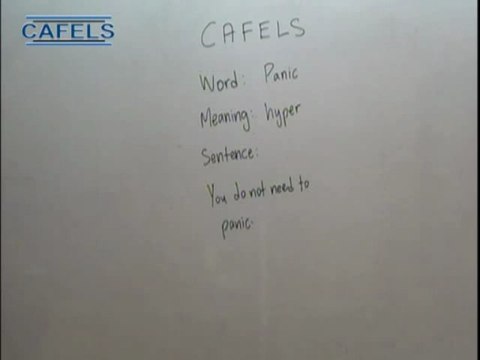 CAFELS
CAFELS
Word: Panic
Meaning: hyper
Sentence:
You do not need to
panic.